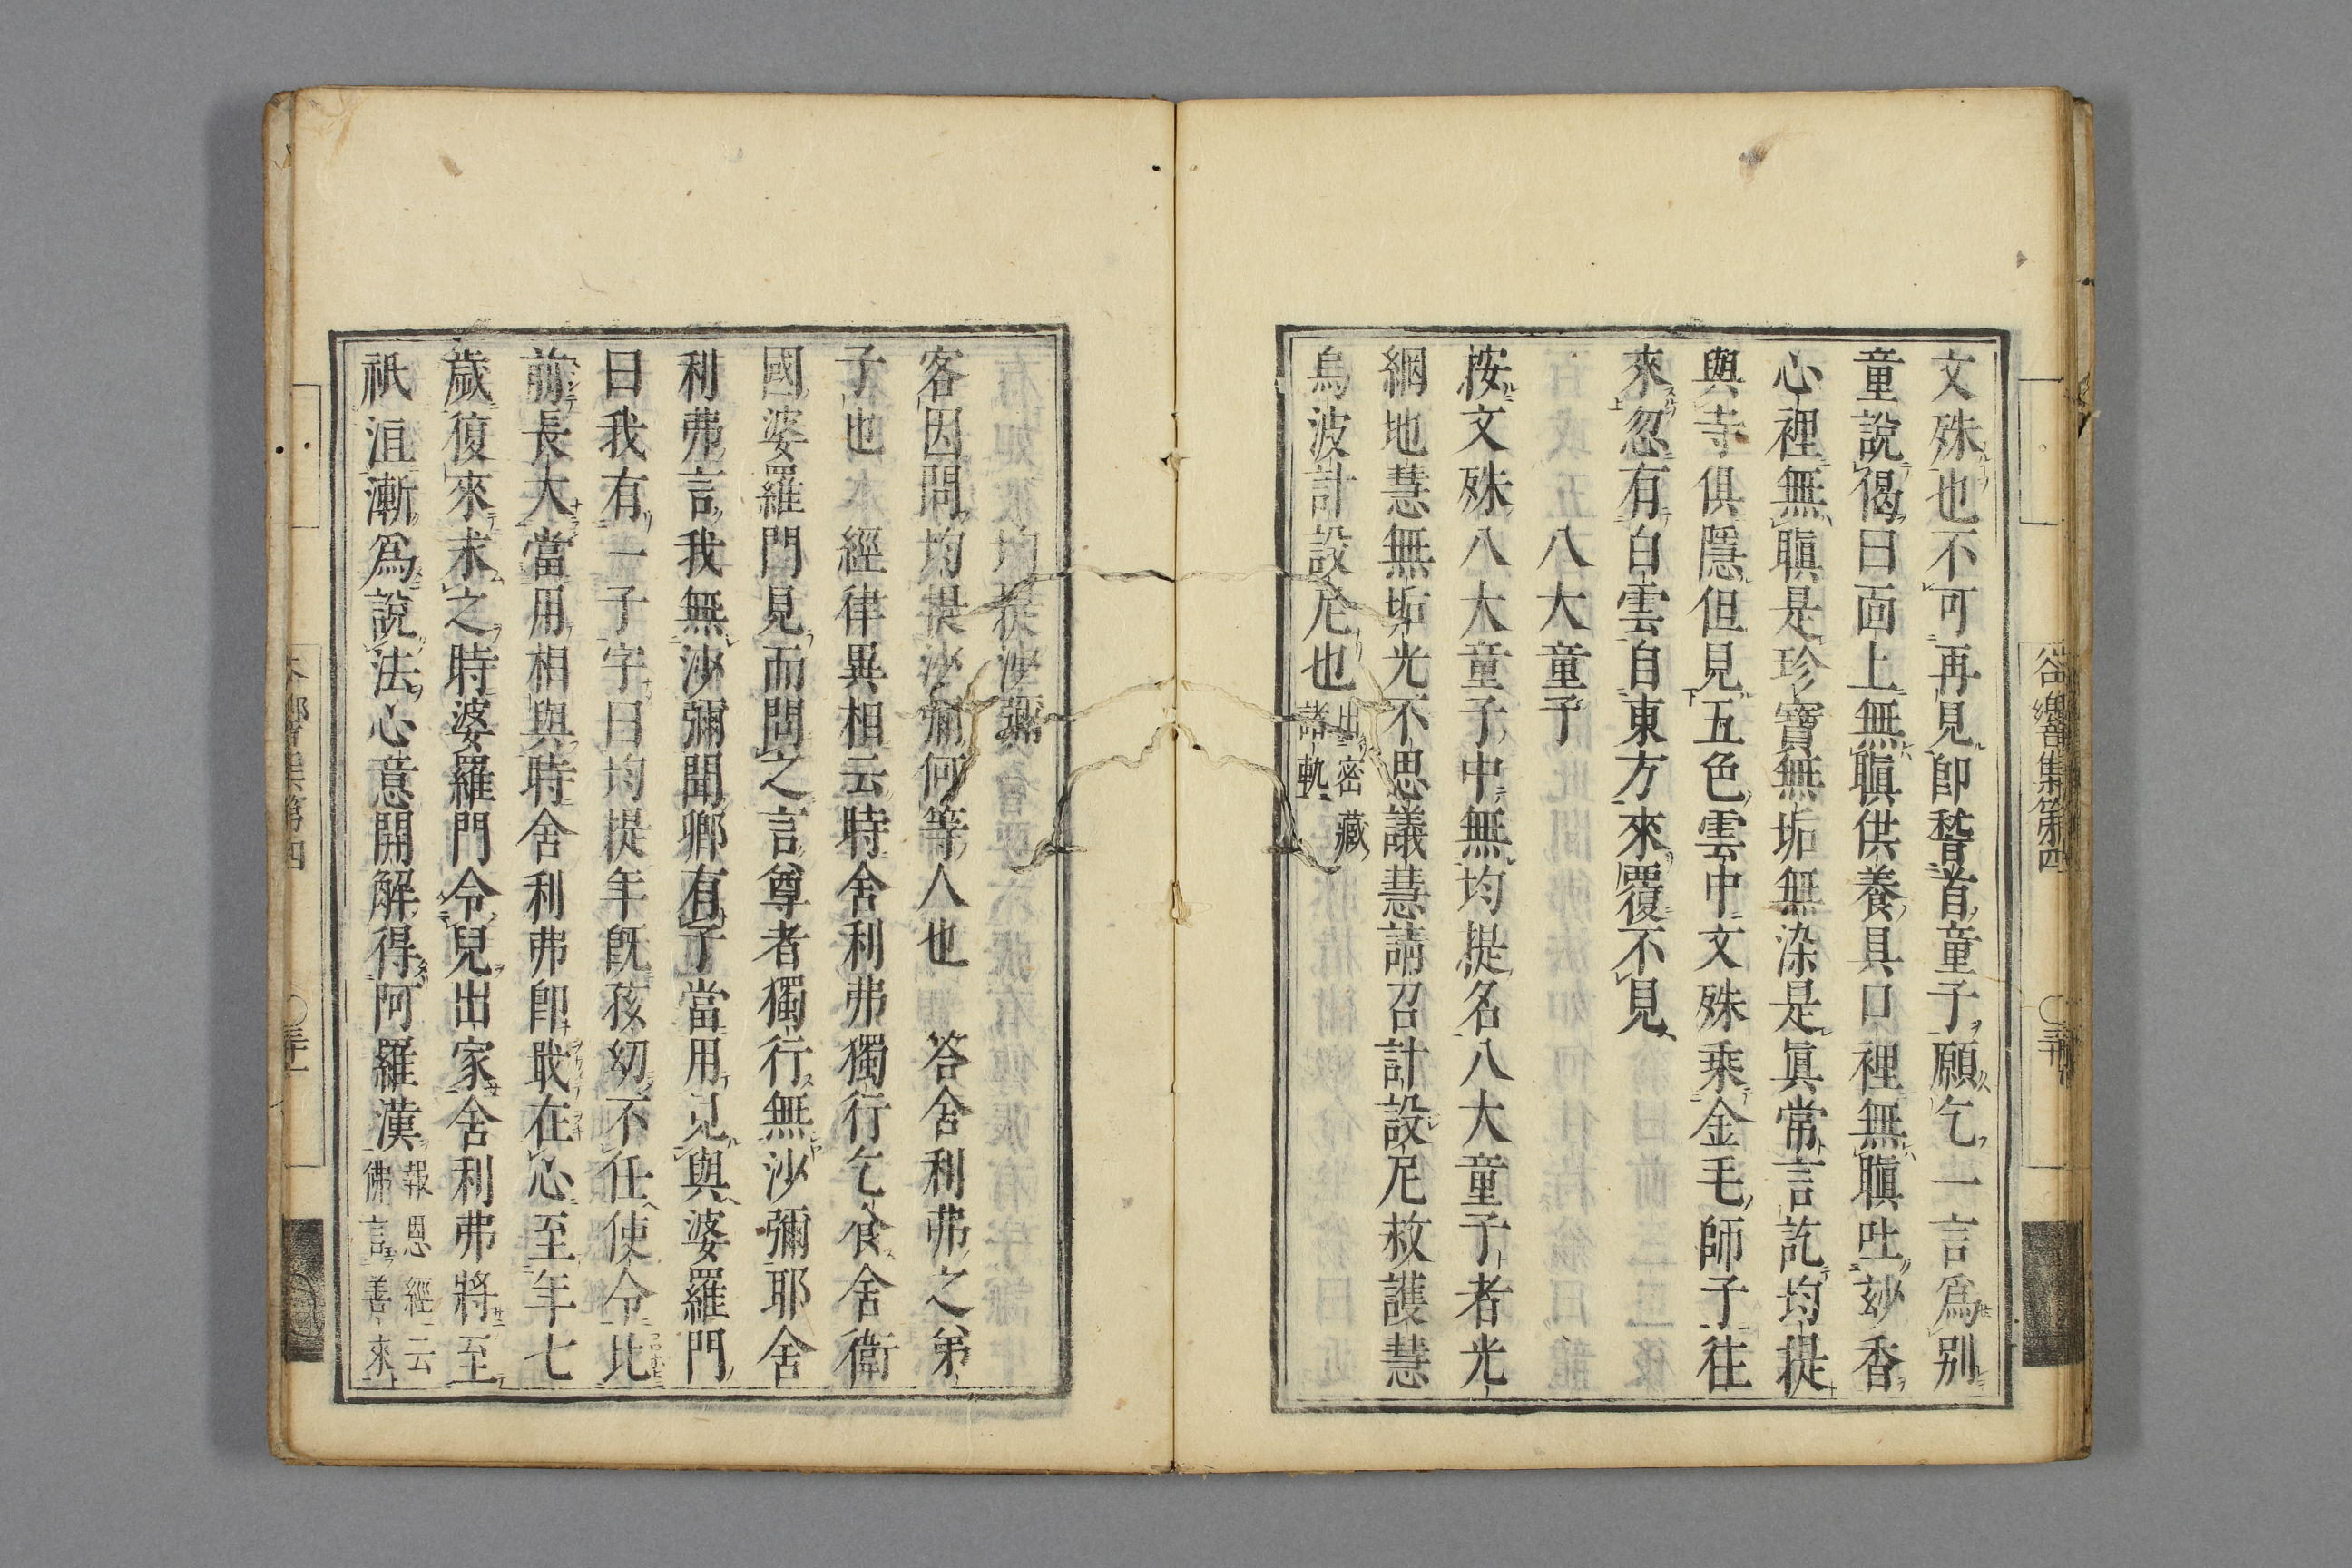 文殊也不可再見卽稽首童子願乞一言爲別
童說偈曰面上無瞋供養具口裡無瞋吐玅香
心裡無瞋是珍寶無垢無染是眞常言訖均提
與寺俱隱但見五色雲中文殊乘金毛師子往
來忽有白雲自東方來覆不見
八大童子
按文殊八大童子中無均提名八大童子者光
網地慧無垢光不思議慧請召計設尼救護慧
烏波計設尼也出密藏諸軌
谷響集第四
均提沙彌
客因問均提沙彌何等人也 答舍利弗之弟
子也 經律異相云時舍利弗獨行乞食舍衛
國婆羅門見而問之言尊者獨行無沙彌耶舍
利弗言我無沙彌聞卿有子當用見與婆羅門
曰我有一子字曰均提年旣孩幼不任使令比
前長大當用相與時舍利弗卽耴在心至年七
歲復來求之時婆羅門令兒出家舍利弗將至
祇洹漸爲說法心意開解得阿羅漢報恩經云佛言善來